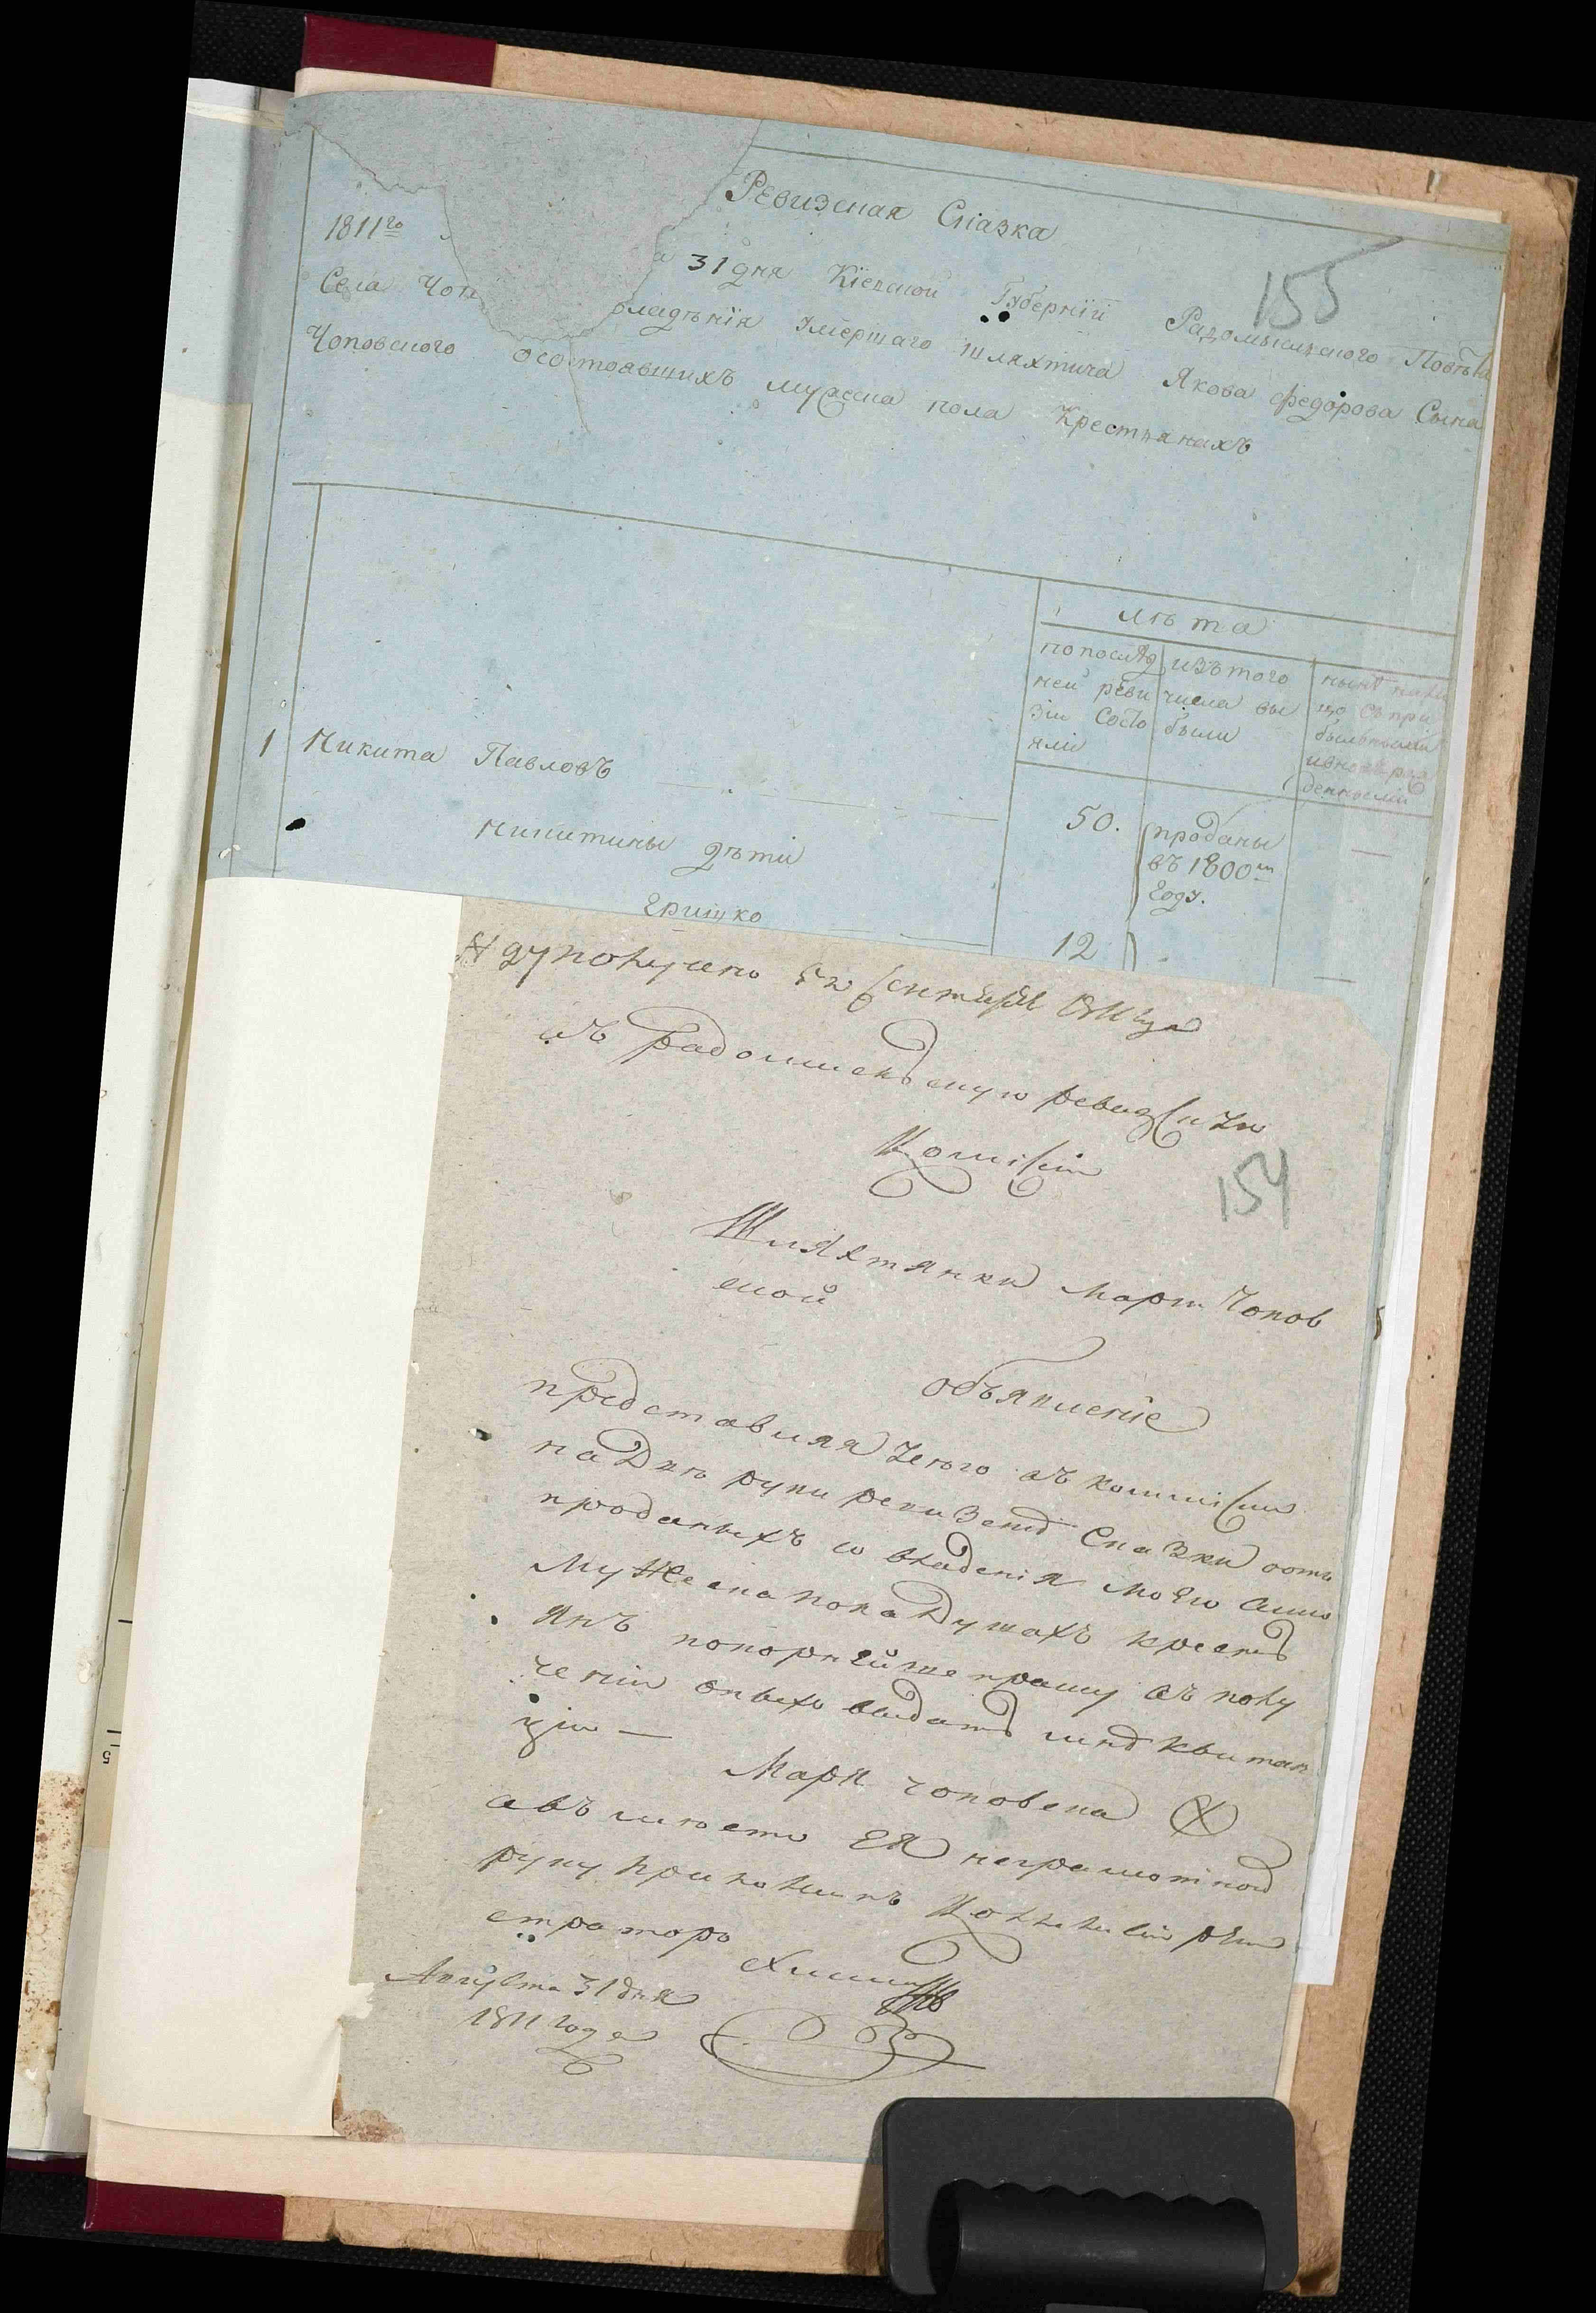 Ревизская Сказка
155
1811го а 31 дня Кіевской Губерніи Радомысльского Повѣта
Села Чоп владѣнія Умершаго шляхтича Якова Федорова Сына
Чоповского осостоявшихъ мужеска пола Крестьянахъ
лѣта
по послѣд
ней реви
зіи состо
яли
изъ того
числа вы
были
нынѣ на
цо съ при
былыми
и вно ро
денными
1 Никита Павловъ 50. проданы
въ 1800м
году.
Никитины дѣти
Гришко 12
получено сентября 1811 года
въ Радомисльскую ревизскую
Комисію
154
Шляхтянки Мари Чопов
ской
объявленіе
представляя у сего въ коммисію
на двѣ руки ревизскіе сказки о
проданыхъ со владенія моего
мужеска пола душахъ кресть
янъ покорнейше прошу въ полу
ченіи оныхъ выдать мнѣ квитан
цію —
Маря Чоповска X
а въ мѣсто ея неграмотной
руку приложилъ Коллежскій реги
страторъ
Августа 31 дня
1811 года
5